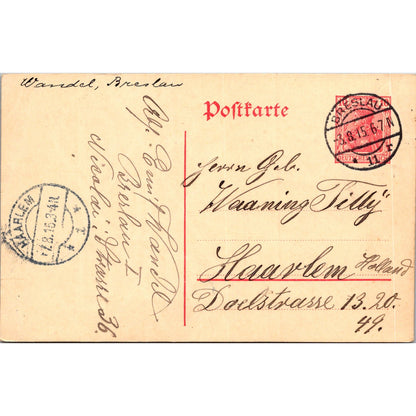 Wandel, Breslau
Postkarte
BRESLAU
-3.8.15.6-7N
* 11 r
Abs. Emil Wandel
Breslau I
Nicolai Strasse 36.
HAARLEM
Herrn Geb.
"Waaning Tilly"
Haarlem Holland
Doelstrasse 13.20.
49.